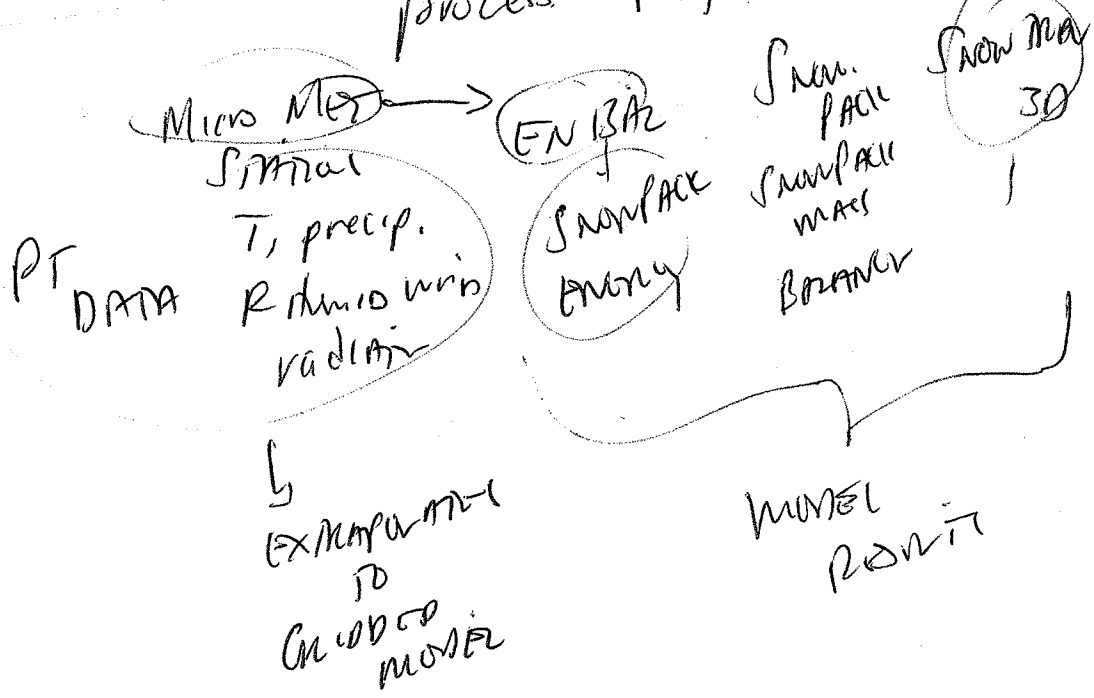 process
Micro Met
Spatial
T, precip.
R humid wind
radiation
PT
DATA
EN BAL
SNOWPACK
ENERGY
SNOW.
PACK
SNOWPACK
MASS
BALANCE
SNOW
3D
EXTRAPOLATES
TO
GRIDDED
MODEL
MODEL